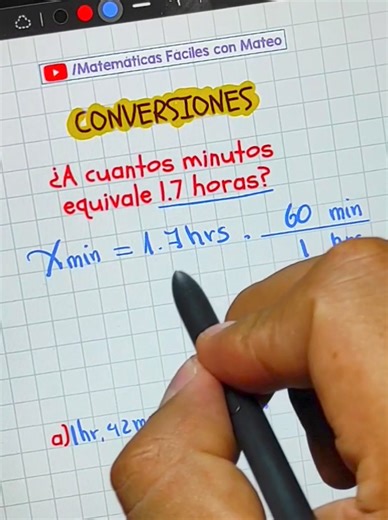 /Matemáticas Fáciles con Mateo
CONVERSIONES
¿A cuantos minutos
equivale 1.7 horas?
X min = 1.7 hrs . 60 min
1 hrs
a) 1hr, 42m